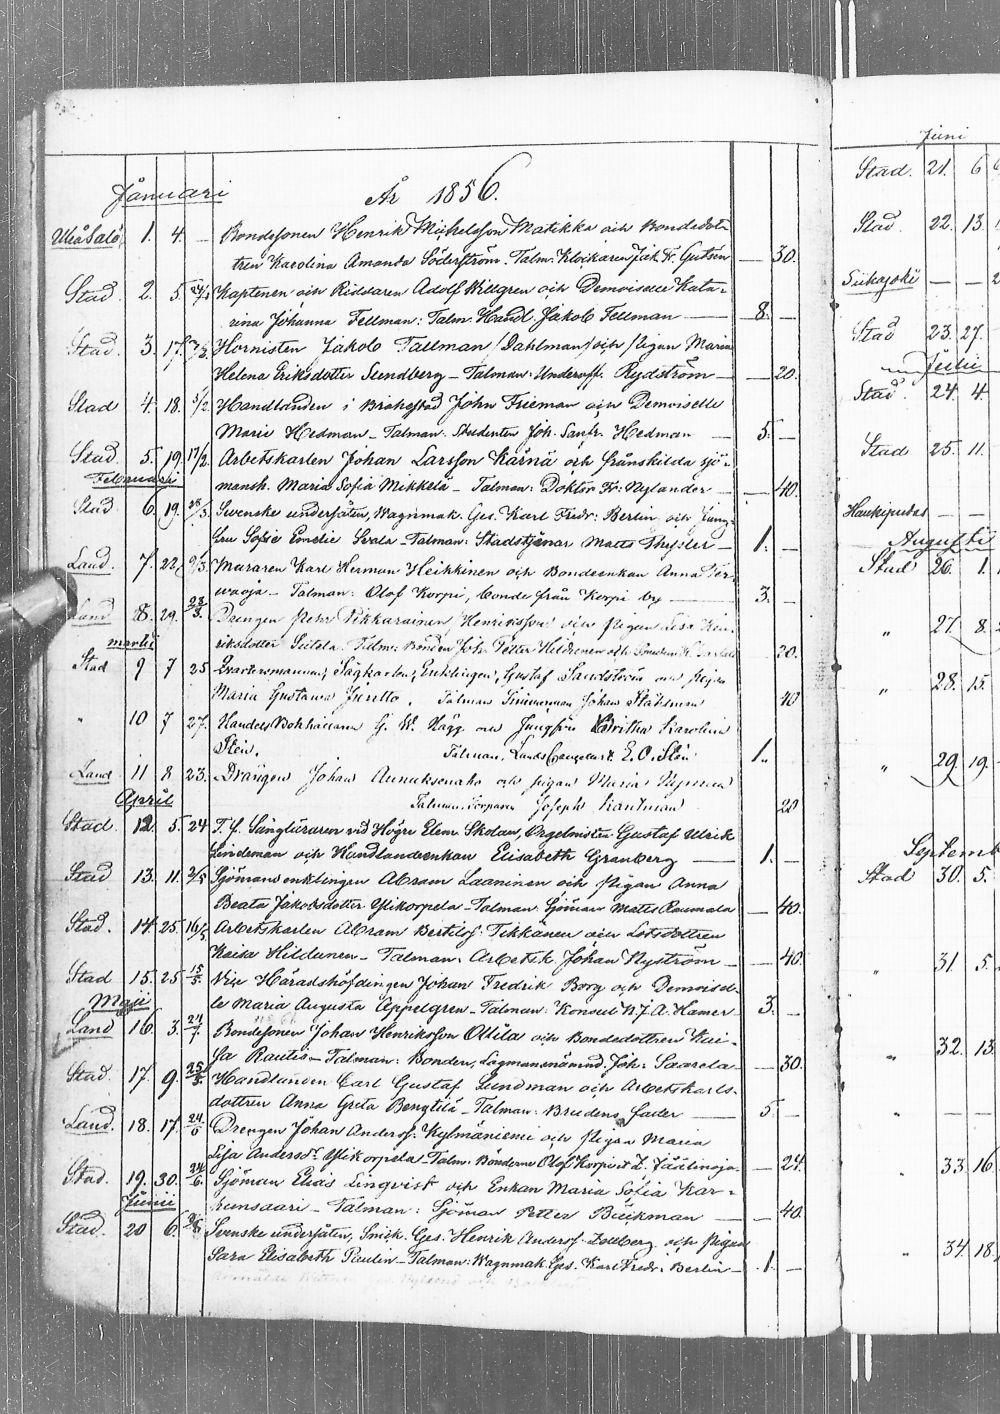 Januari
År 1856.
Uleåsalo 1. 4. — Bondesonen Henrik Michelsson Matikka och Bondedot-
tren Karolina Amanda Söderström. Talm. Klockaren Jak. Fr. — 30.
Stad 2. 5. Kaptenen och Riddaren Adolf Willgren och Demoiselle Kata-
rina Johanna Fellman: Talm. Handl. Jakob Fellman — 8. —
Stad. 3. 17. Hornisten Jakob Tallman (Dahlman) och Pigan Maria
Helena Eriksdotter Sundberg — Talman: Underoff. Rydström — 20.
Stad 4. 18. 5/2. Handlanden i Brahestad John Frieman och Demoiselle
Marie Hedman — Talman: Studenten Joh. Hedman — 5. —
Stad. 5. 19. 17/2. Arbetskarlen Johan Larsson Kärnä och frånskilda sjö-
mansh. Maria Sofia Mikkelä — Talman: Doktor Fr: Nylander — 40.
Februari
Stad 6. 19. Svenske undersåten, Wagnmak. Ges. Karl Fredr: Berlin och Jung-
frun Sofie Emelie Svala — Talman: Stadstjenar Matts Thesler — 1. —
Land. 7. 22. 9/3. Muraren Karl Herman Heikkinen och Bondeenkan Anna Ter-
vaoja — Talman: Olof Korpi, bonde från Korpi by — 3. —
Land 8. 29. 23/3. Drengen Pehr Pikkarainen Henriksson och Pigan Lisa Hen-
riksdotter — Talm: Bonden Joh. Petter Heldenen och 20.
Martii
Stad 9 7 25 Qvartersmannen, Sågkarlen, Enklingen, Gustaf Sandström och Pigan
Maria Gustava Juntto. Talman Timmerman Johan Ståhlman 40
" 10 7 27. HandelsBokhållaren G. W. Hägg och Jungfrun Britha Karolina
Stein. Talman, E. O. Stein 1. "
Land 11 8 23. Drängen Johan Annuksenaho och Pigan Maria
Talman, Torparen Joseph Kauniman 20
April
Stad. 12. 5. 24 T. f. Sångläraren vid Högre Elem. Skolan, Orgelnisten Gustaf Ulrik
Lindeman och Handlandeenkan Elisabeth Granberg — 1. —
Stad 13. 11. 2/5 Sjömansenklingen Abram Laaninen och Pigan Anna
Beata Jakobsdotter Ylikorpela — Talman: Sjöman Matts Raumala — 40.
Stad. 14. 25. 16/5 Arbetskarlen Abram Bertilsf. Tikkanen och Lotsdottren
Kaisa Hildunen — Talman: Arbetsk. Johan Nyström — 40.
Stad 15. 25 15/5. Vice Häradshöfdingen Johan Fredrik Borg och Demoisel-
le Maria Augusta Appelgren — Talman: Konsul N. J. A. Hamer — 3. —
Maji
Land 16. 3. 27/7. Bondesonen Johan Henriksson Ollila och Bondedottren Kai-
sa Rautio — Talman: Bonden, Lagmansnämnd. Joh: Saarela — 30.
Stad. 17. 9. 25/5. Handlanden Carl Gustaf Sundman och Arbetskarls-
dottren Anna Greta Bengtilä — Talman: Brudens fader — 5. —
Land. 18. 17. 24/6 Drengen Johan Andersf. Kylmäniemi och Pigan Maria
Lisa Andersdr. Ylikorpela — Talm: Bönderne Olof Korpi et Z. Jäälinoja. — 24.
Stad. 19. 30. 24/6. Sjöman Elias Linqvist och Enkan Maria Sofia Kar-
hunsaari — Talman: Sjöman Petter Bäckman — 40.
Junii
Stad. 20 6. Svenske undersåten, Smik. Ges. Henrik Andersf. Zellberg och Pigan
Sara Elisabeth Paulin — Talman: Wagnmak. Ges. Karl Fredr: Berlin — 1. —
Juni
Stad. 21. 6
Stad 22. 13.
Siikajoki — —
Stad 23. 27.
Julii
Stad 24. 4
Stad 25. 11.
Haukipudas — —
Augusti
Stad 26. 1.
" 27. 8.
" 28. 15.
" 29. 19.
Septemb
Stad 30. 5.
" 31. 5.
" 32. 13.
" — —
" 33. 16.
" 34. 18.